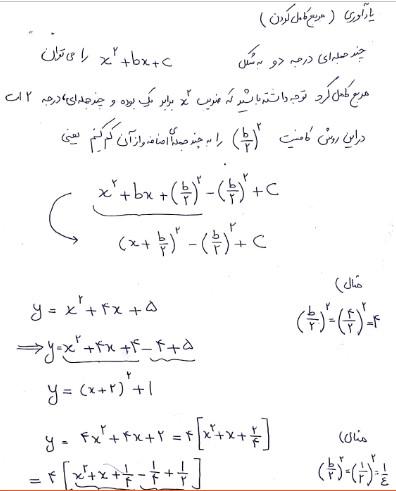 یادآوری ( مربع کامل کردن )
چند جمله‌ای درجه دو به شکل x²+bx+c را می‌توان
مربع کامل کرد توجه داشته باشید که ضریب x² برابر یک بوده و چندجمله‌ای، درجه ۲ است
در این روش کافیست (b/۲)² را به چند جمله‌ای اضافه و از آن کم کنیم یعنی
x²+bx+(b/۲)²-(b/۲)²+C
(x+b/۲)²-(b/۲)²+C
مثال)
y = x²+۴x+۵ (b/۲)²=(۴/۲)²=۴
⇒ y=x²+۴x+۴-۴+۵
y=(x+۲)²+۱
مثال)
y= ۴x²+۴x+۲ = ۴[x²+x+۲/۴]
= ۴[x²+x+۱/۴-۱/۴+۱/۲] (b/۲)²=(۱/۲)²=۱/٤